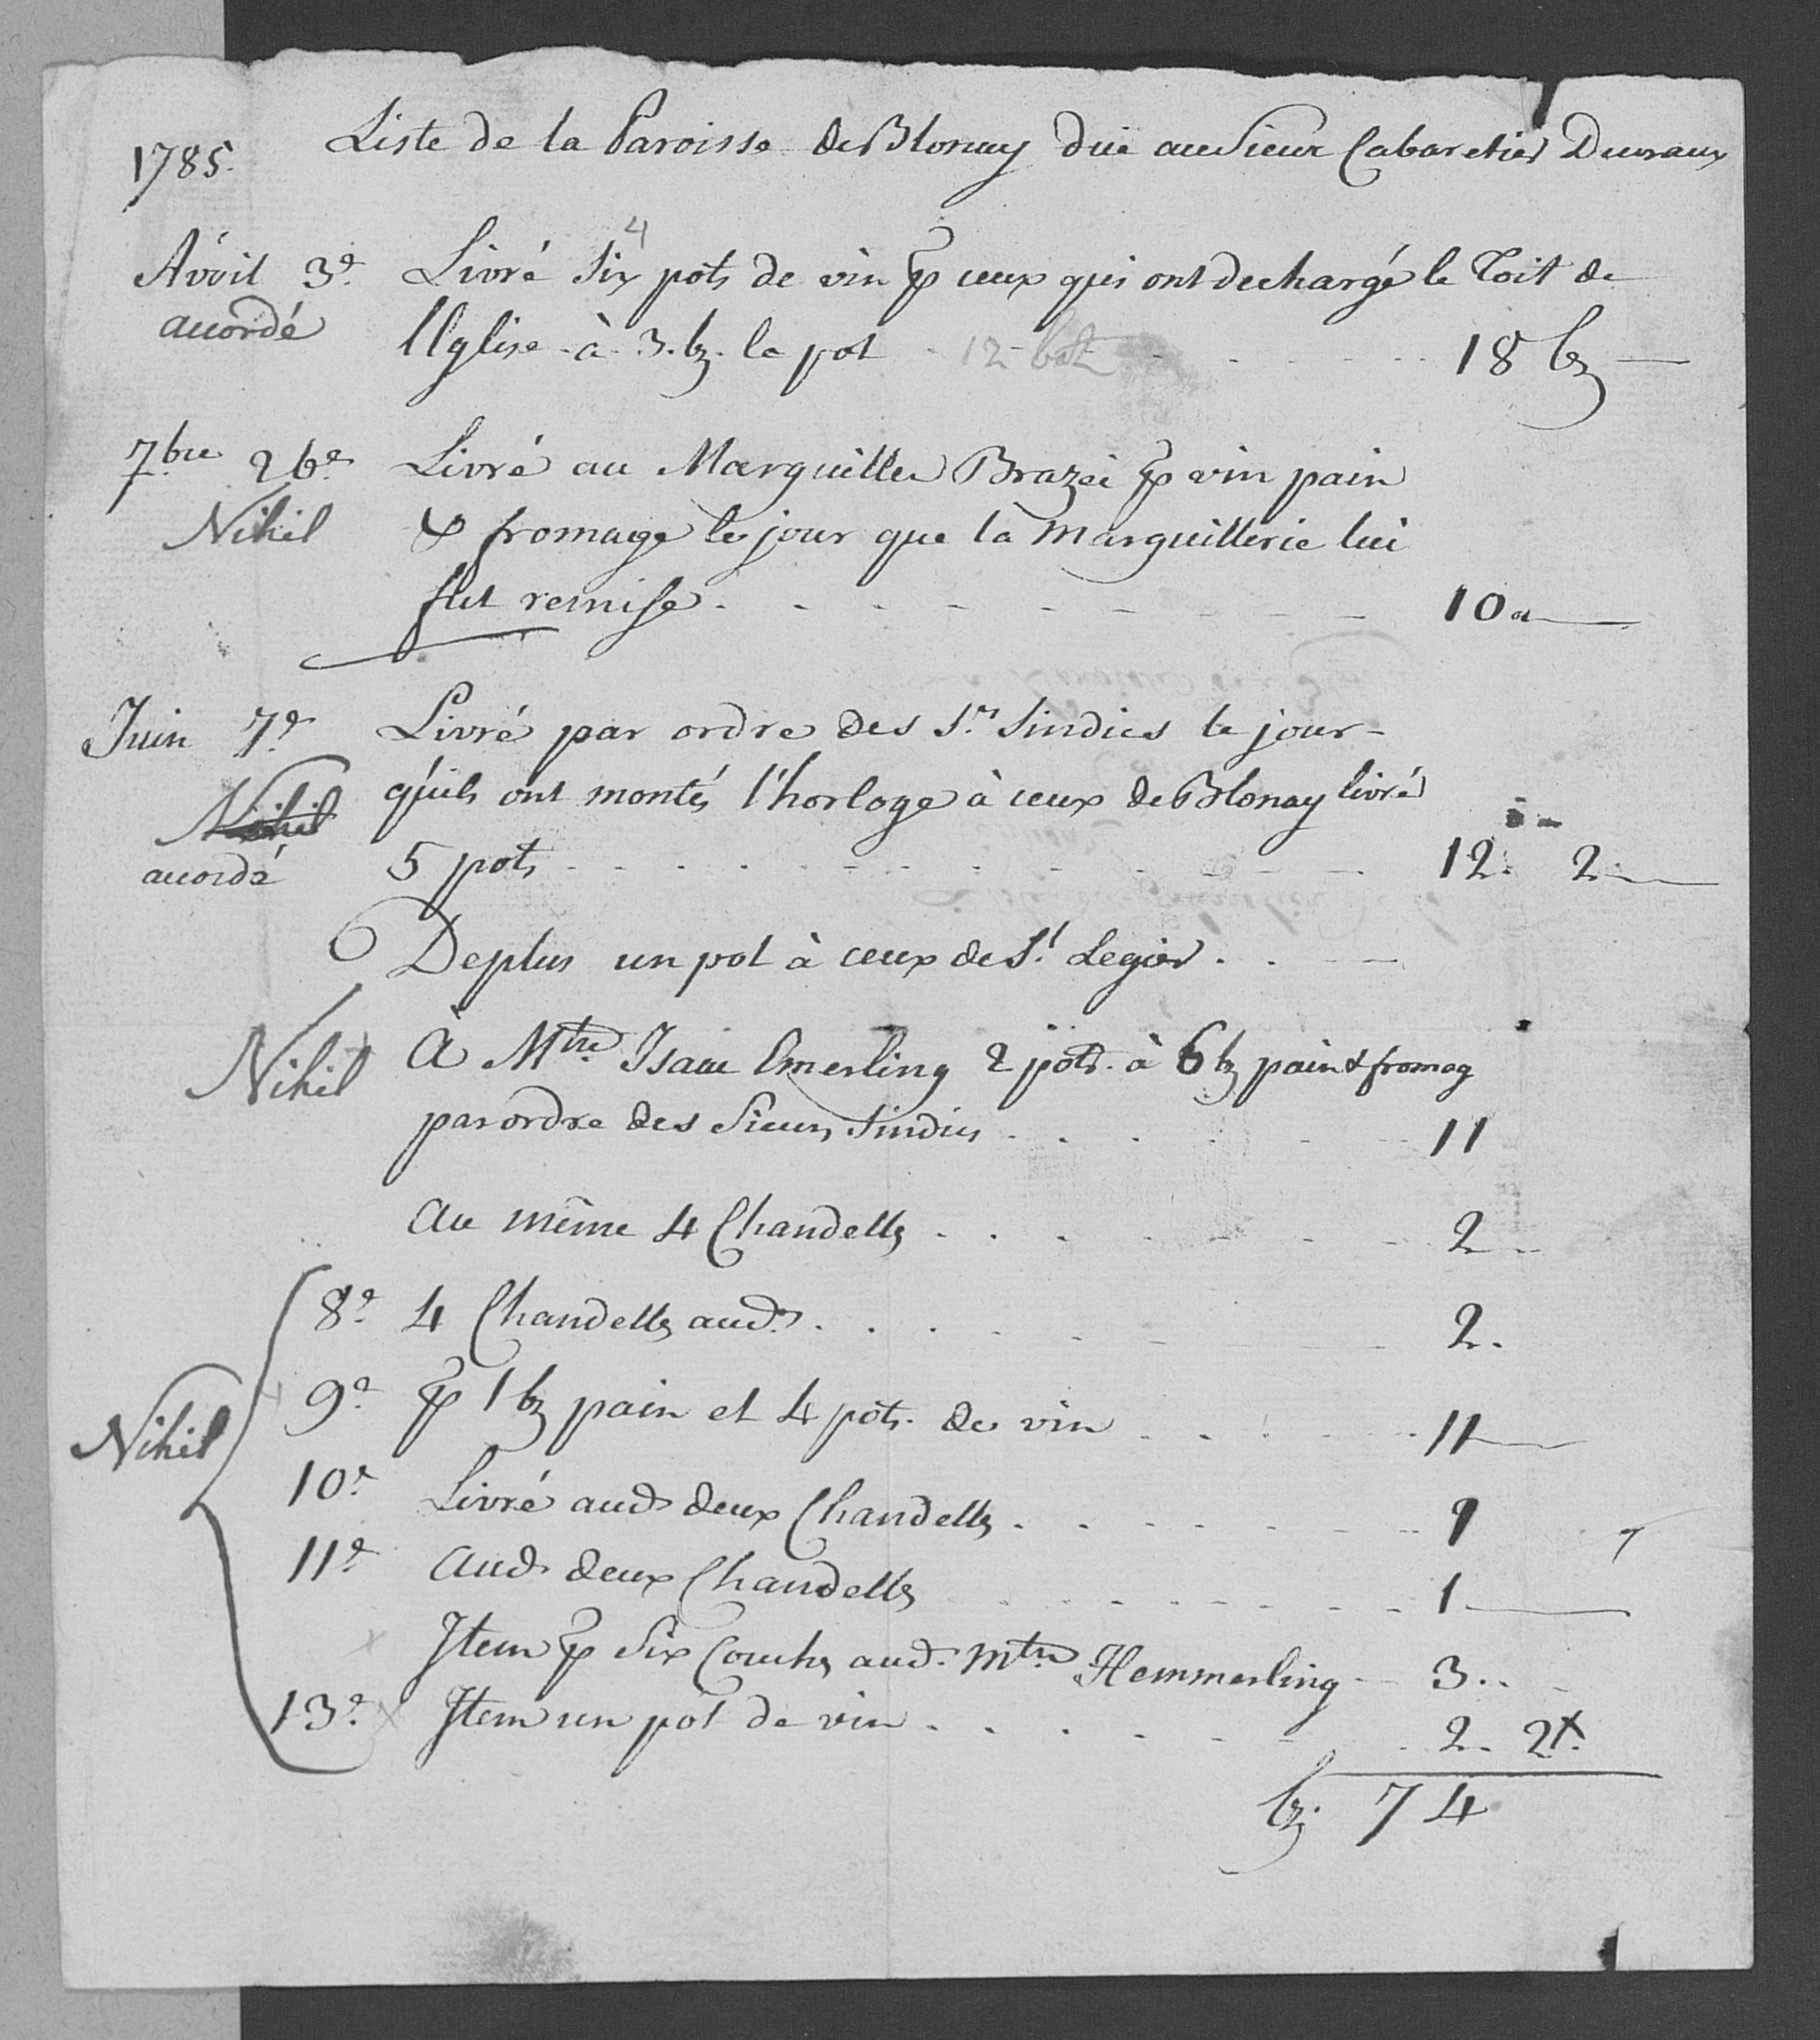 1785. Liste de la Paroisse de Blonay düe au Sieur Cabaretier Ducraux
4
Avril 3e. Livré Six pots de vin p ceux qui ont dechargé le Toit de
acordé l'Iglise à 3. bz. le pot 12 btz 18 bz
7bre 26e Livré au Marguiller Brazei p vin pain
Nihil & fromage le jour que la Marguillerie lui
fut remise 10 a
Juin 7e. Livré par ordre des Srs Sindics le jour
Nihil qu'ils ont montés l'horloge à ceux de Blonay livré
acordé 5 pots 12. 2
De plus un pot à ceux de St. Legier
Nihil A Mtre Isaac Emerling 2 pots à 6 bz pain & fromag
par ordre des Sieurs Sindics 11
Au même 4 Chandelles 2
8e. 4 Chandelles aud. 2.
Nihil 9e p 1 bz pain et 4 pots de vin 11
10e. Livré aud deux Chandelles 1
11e. Aud deux Chandelles 1
Item p Six Couches aud. Mtre Hemmerling 3
13e. Item un pot de vin 2. 2X.
bz. 74